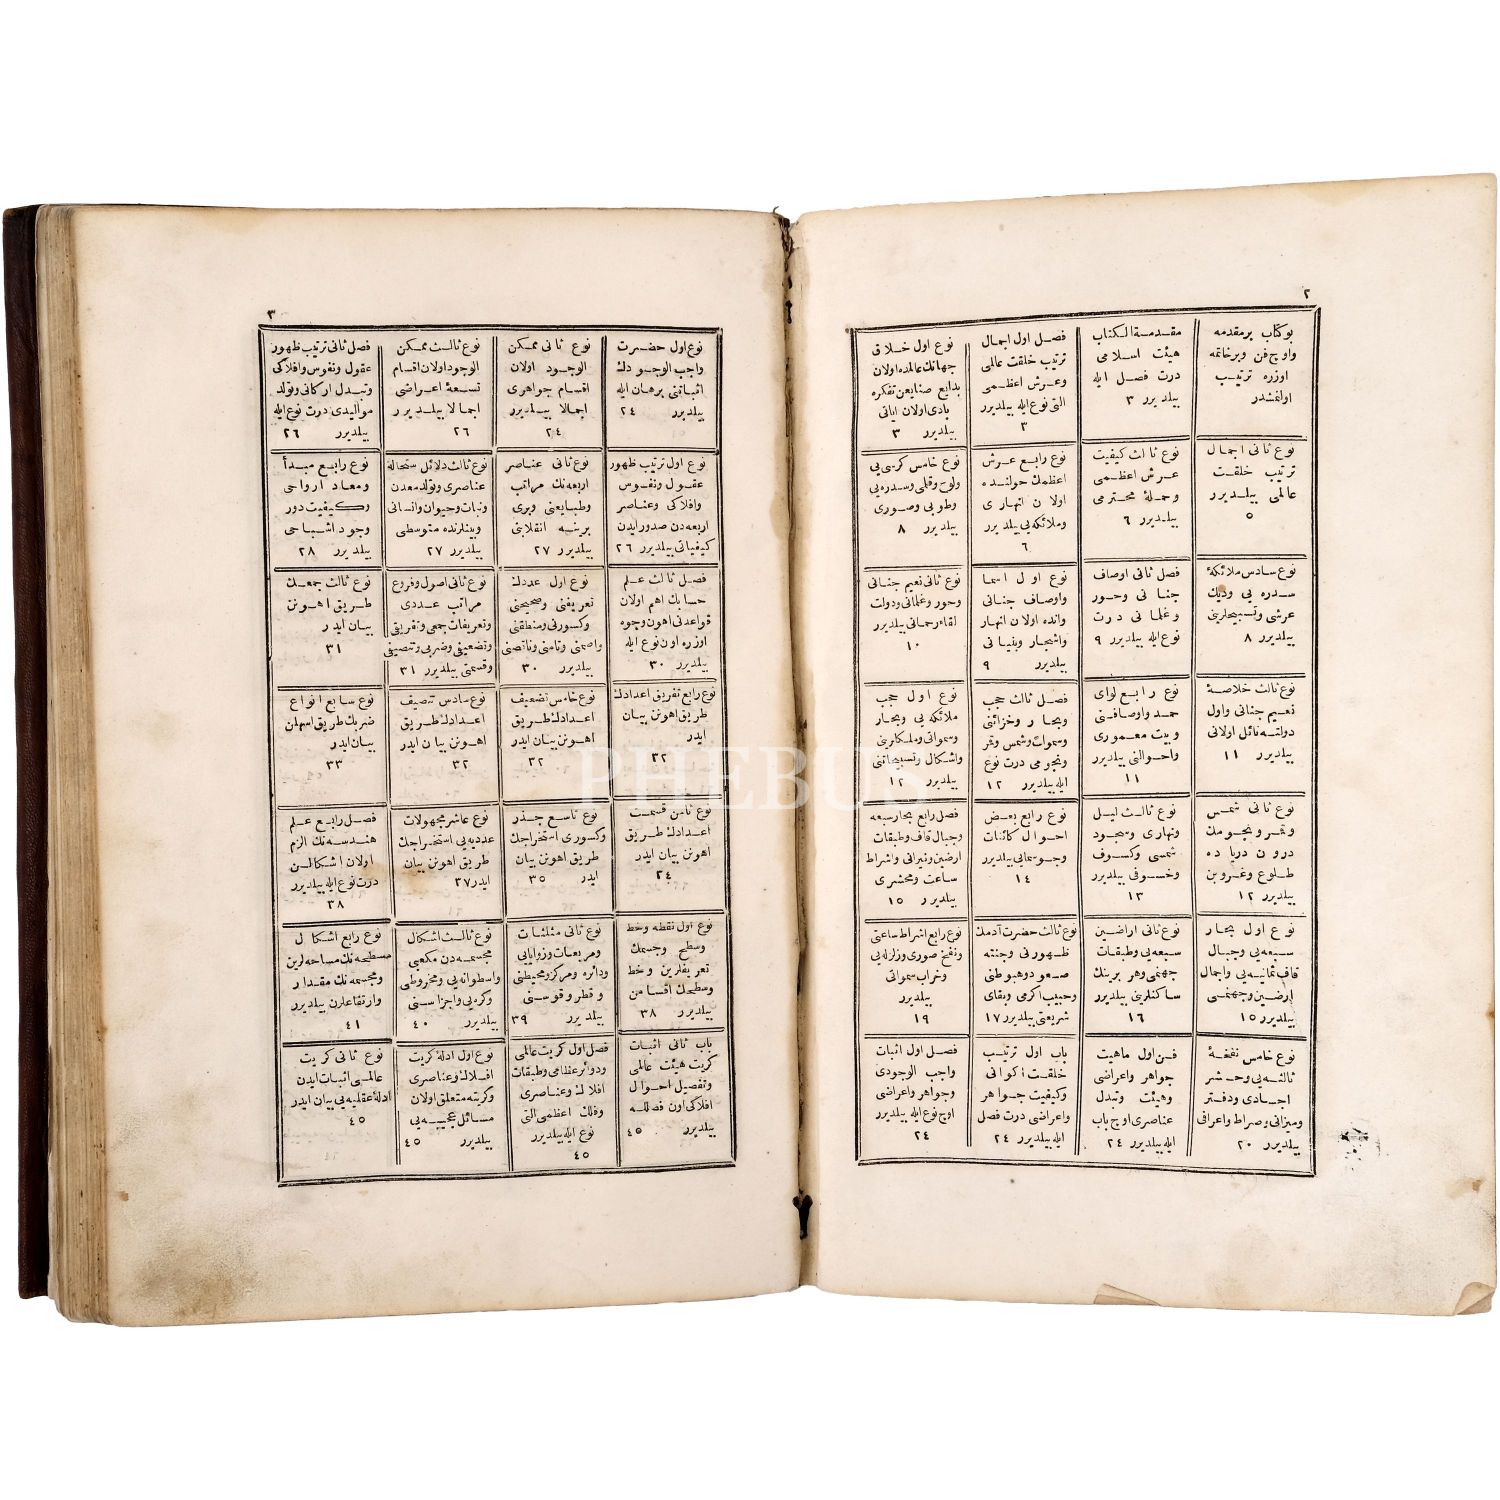 ٢
بو كتاب بر مقدمه
واوچ فن وبر خاتمه
اوزره ترتيب
اولنمشدر
مقدمة الكتاب
هيئت اسلامى
درت فصل ايله
بيلديرر ٣
فصل اول اجمال
ترتيب خلقت عالمى
وعرش اعظمى
التى نوع ايله بيلديرر
٣
نوع اول خلاق
جهانك عالمده اولان
بدايع صنايعن تفكره
بادى اولان اياتى
بيلديرر ٣
نوع ثانى اجمال
ترتيب خلقت
عالمى بيلديرر
٥
نوع ثالث كيفيت
عرش اعظمى
وحملۀ محترمى
بيلديرر ٦
نوع رابع عرش
اعظمك حولنده
اولان انهارى
وملائكه يى بيلديرر
٦
نوع خامس كرسى يى
ولوح وقلمى وسدره يى
وطوبى وصورى
بيلديرر ٨
نوع سادس ملائكۀ
سدره يى وديك
عرشى وتسبيحلرينى
بيلديرر ٨
فصل ثانى اوصاف
جنانى وحور
وغلمانى درت
نوع ايله بيلديرر ٩
نوع اول اسما
واوصاف جنانى
وانده اولان انهار
واشجار وبنيانى
بيلديرر ٩
نوع ثانى نعيم جنانى
وحور وغلمانى ودولت
لقاء رحمانى بيلديرر
١٠
نوع ثالث خلاصۀ
نعيم جنانى واول
دولته نائل اولانى
بيلديرر ١١
نوع رابع لواى
حمد واوصافنى
وبيت معمورى
واحوالنى بيلديرر
١١
فصل ثالث حجب
وبحار وخزائنى
وسموات وشمس وقمر
ونجومى درت نوع
ايله بيلديرر ١٢
نوع اول حجب
ملائكه يى وبحار
وسمواتى وملكلرينى
واشكال وتسبيحاتنى
بيلديرر ١٢
نوع ثانى شمس
وقمر ونجومك
درون درياده
طلوع وغروبن
بيلديرر ١٢
نوع ثالث ليل
ونهارى وسجود
شمسى وكسوف
وخسوفى بيلديرر
١٣
نوع رابع بعض
احوال كائنات
وجو سمايى بيلديرر
١٤
فصل رابع بحار سبعه
وجبال قاف وطبقات
ارضين ونيرانى واشراط
ساعت ومحشرى
بيلديرر ١٥
نوع اول بحار
سبعه يى وجبال
قاف ثمانيه يى واجمال
ارضين وجهنمى
بيلديرر ١٥
نوع ثانى اراضين
سبعه يى وطبقات
جهنمى وهر برينك
ساكنلرينى بيلديرر
١٦
نوع ثالث حضرت آدمك
ظهورنى وجنته
صعود وهبوطنى
وحبيب اكرمى وبقاى
شريعتى بيلديرر ١٧
نوع رابع اشراط ساعتى
ونفخ صورى وزلزله يى
وخراب سمواتى
بيلديرر
١٩
نوع خامس نفخۀ
ثالثه يى وحشر
اجسادى ودفتر
وميزانى وصراط واعرافى
بيلديرر ٢٠
فن اول ماهيت
جواهر واعراضى
وهيئت وتبدل
عناصرى اوچ باب
ايله بيلديرر ٢٤
باب اول ترتيب
خلقت اكوانى
وكيفيت جواهر
واعراضى درت فصل
ايله بيلديرر ٢٤
فصل اول اثبات
واجب الوجودى
وجواهر واعراضى
اوچ نوع ايله بيلديرر
٢٤
٣
نوع اول حضرت
واجب الوجودك
اثباتنى برهان ايله
بيلديرر ٢٤
نوع ثانى ممكن
الوجود اولان
اقسام جواهرى
اجمالا بيلديرر
٢٤
نوع ثالث ممكن
الوجود اولان اقسام
تسعۀ اعراضى
اجمالا بيلديرر
٢٦
فصل ثانى ترتيب ظهور
عقول ونفوس وافلاكى
وتبدل اركانى وتولد
مواليدى درت نوع ايله
بيلديرر ٢٦
نوع اول ترتيب ظهور
عقول ونفوس
وافلاكى وعناصر
اربعه دن صدور ايدن
كيفياتى بيلديرر ٢٦
نوع ثانى عناصر
اربعه نك مراتب
وطبايعنى وبرى
برينه انقلابنى
بيلديرر ٢٧
نوع ثالث دلائل ستحالۀ
عناصرى وتولد معدن
ونبات وحيوان وانسانى
وبينلرنده متوسطى
بيلديرر ٢٧
نوع رابع مبدأ
ومعاد ارواحى
وكيفيت دور
وجود اشباحى
بيلديرر ٢٨
فصل ثالث علم
حسابك اهم اولان
قواعدنى اهون وجوه
اوزره اون نوع ايله
بيلديرر ٣٠
نوع اول عددك
تعريفنى وصحيحنى
وكسورنى ومنطقنى
واصمنى وتامنى وناقصنى
بيلديرر ٣٠
نوع ثانى اصول وفروع
مراتب عددى
وتعريفات جمعى وتفريقى
وتضعيفى وضربى وتنصيفى
وقسمتى بيلديرر ٣١
نوع ثالث جمعك
طريق اهونن
بيان ايدر
٣١
نوع رابع تفريق اعدادك
طريق اهونن بيان
ايدر
٣٢
نوع خامس تضعيف
اعدادك طريق
اهونن بيان ايدر
٣٢
نوع سادس تنصيف
اعدادك طريق
اهونن بيان ايدر
٣٢
نوع سابع انواع
ضربك طريق اسهلن
بيان ايدر
٣٣
نوع ثامن قسمت
اعدادك طريق
اهونن بيان ايدر
٣٤
نوع تاسع جذر
وكسورى استخراجك
طريق اهونن بيان
ايدر ٣٥
نوع عاشر مجهولات
عدديه يى استخراجك
طريق اهونن بيان
ايدر ٣٧
فصل رابع علم
هندسه نك الزم
اولان اشكالن
درت نوع ايله بيلديرر
٣٨
نوع اول نقطه وخط
وسطح وجسمك
تعريفلرين وخط
وسطحك اقسامن
بيلديرر ٣٨
نوع ثانى مثلثات
ومربعات وزوايايى
ودائره ومركز ومحيطنى
وقطر وقوسنى
بيلديرر ٣٩
نوع ثالث اشكال
مجسمه دن مكعبى
واسطوانه يى ومخروطى
وكره يى واجزاسنى
بيلديرر ٤٠
نوع رابع اشكال
مسطحه نك مساحه لرين
ومجسمه نك مقدار
وارتفاعلرن بيلديرر
٤١
باب ثانى اثبات
كريت هيئت عالمى
وتفصيل احوال
افلاكى اون فصلله
بيلديرر ٤٥
فصل اول كريت عالمى
ودوائر عظامى وطبقات
افلاك وعناصرى
وفلك اعظمى التى
نوع ايله بيلديرر
٤٥
نوع اول ادلۀ كريت
افلاك وعناصرى
وكريته متعلق اولان
مسائل عجيبه يى
بيلديرر ٤٥
نوع ثانى كريت
عالمى اثبات ايدن
ادلۀ عقليه يى بيان ايدر
٤٥
PHEBUS